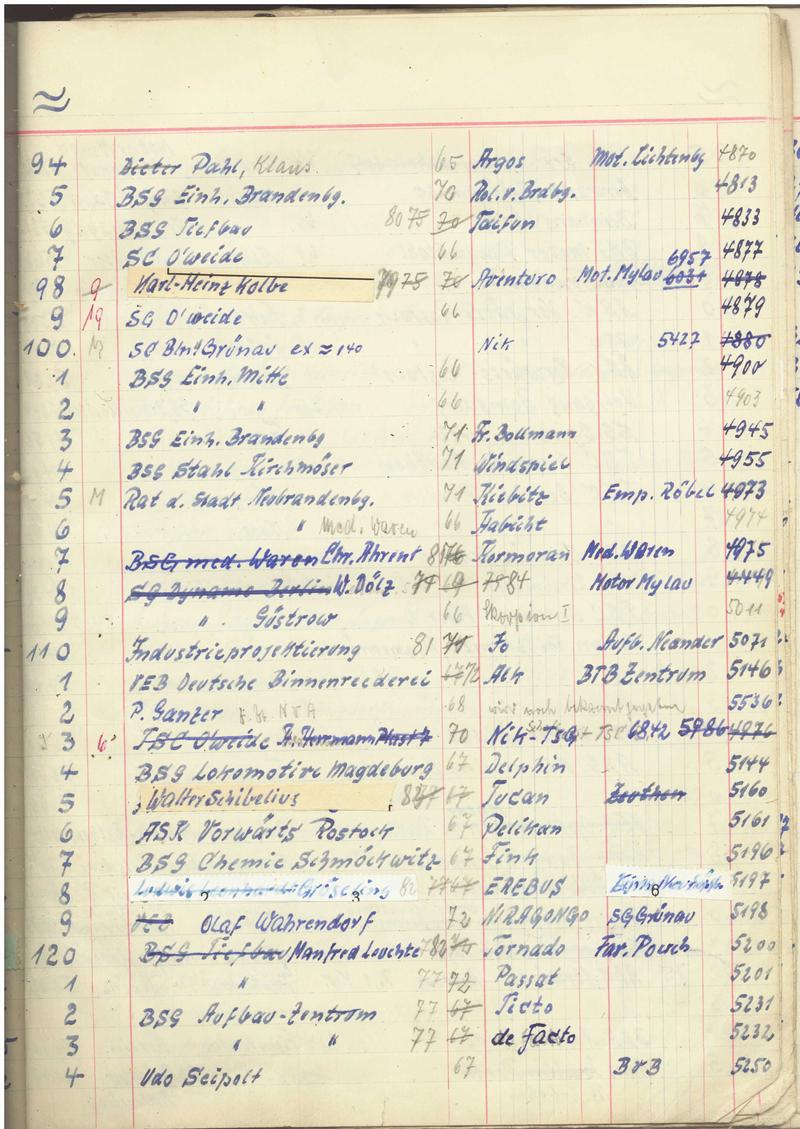 94 Dieter Pahl, Klaus 65 Argos Mot. Lichtenbg 4870
5 BSG Einh. Brandenbg. 70 Rol. v. Brdbg. 4813
6 BSG Tiefbau 80 75 70 Taifun 4833
7 SC O'weide 66 4877
98 9 Karl-Heinz Kolbe 79 75 70 Aventuro Mot. Mylau 6957 6031 4878
9 19 SG O'weide 66 4879
100. M SC Bln. Grünau ex Z 140 Nik 5427 4880
1 BSG Einh. Mitte 66 4900
2 " " 66 4903
3 BSG Einh. Brandenbg 71 Fr. Bollmann 4945
4 BSG Stahl Kirchmöser 71 Windspiel 4955
5 M Rat d. Stadt Neubrandenbg. 71 Kiebitz Emp. Röbel 4973
6 " Med. Waren 66 Habicht 4974
7 BSG med. Waren Chr. Ahrent Kormoran Med. Waren 4975
8 SG Dynamo Berlin W. Dölz 69 84 Motor Mylau 4449
9 " Güstrow 66 Skorpion I 5011
110 Industrieprojektierung 81 71 Jo Aufb. Neander 5071
1 VEB Deutsche Binnenreederei 67 72 Ack BTB Zentrum 5146
2 P. Ganzer NVA 68 wird noch bekanntgegeben 5536
3 6 TSC O'weide 70 Nik-TSG 6842 5986 4976
4 BSG Lokomotive Magdeburg 67 Delphin 5144
5 Walter Schibelius 67 Tucan Zeuthen 5160
6 ASK Vorwärts Rostock 67 Pelikan 5161
7 BSG Chemie Schmöckwitz 67 Fink 5196
8 82 77 67 EREBUS 5197
9 VEB Olaf Wahrendorf 72 NIRAGONGO SG Grünau 5198
120 BSG Tiefbau Manfred Leuchte 82 72 Tornado Far. Pouch 5200
1 " 77 72 Passat 5201
2 BSG Aufbau-Zentrum 77 67 Ticto 5231
3 " " 77 67 de facto 5232
4 Udo Seipolt 67 BVB 5250